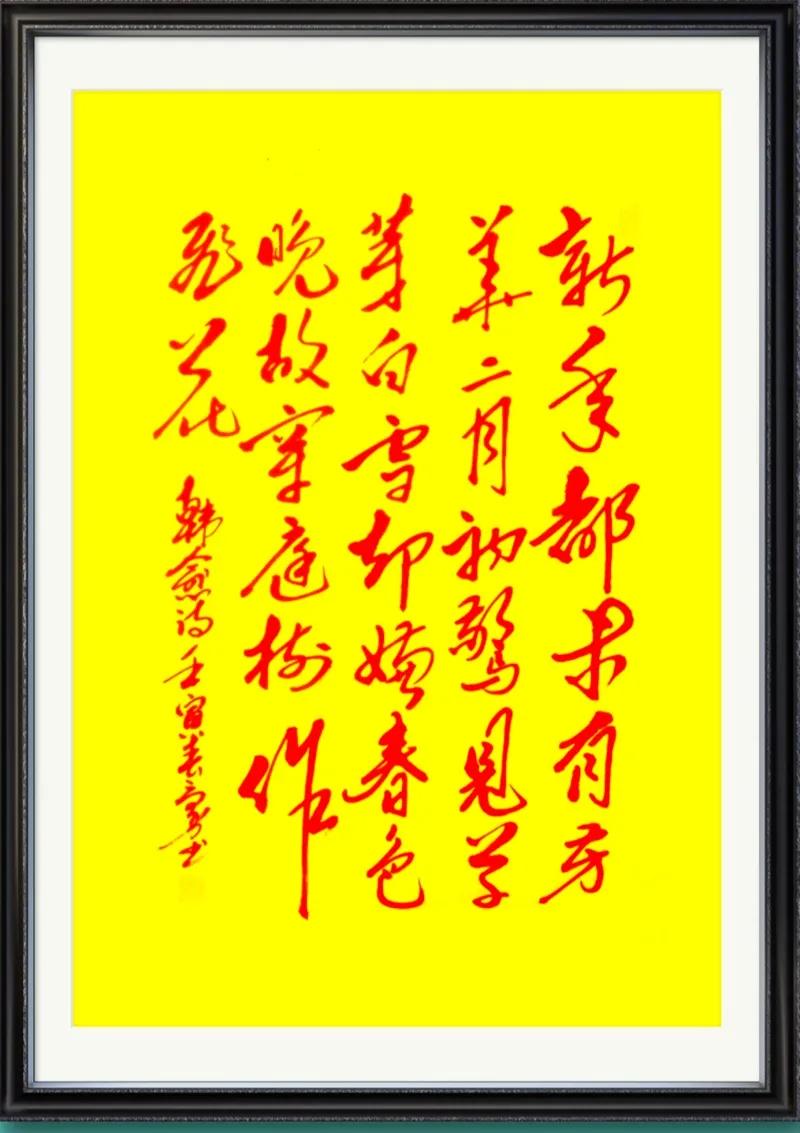 新年都未有芳
華二月初驚見草
芽白雪却嫌春色
晚故穿庭树作
飛花
韩愈诗壬寅书